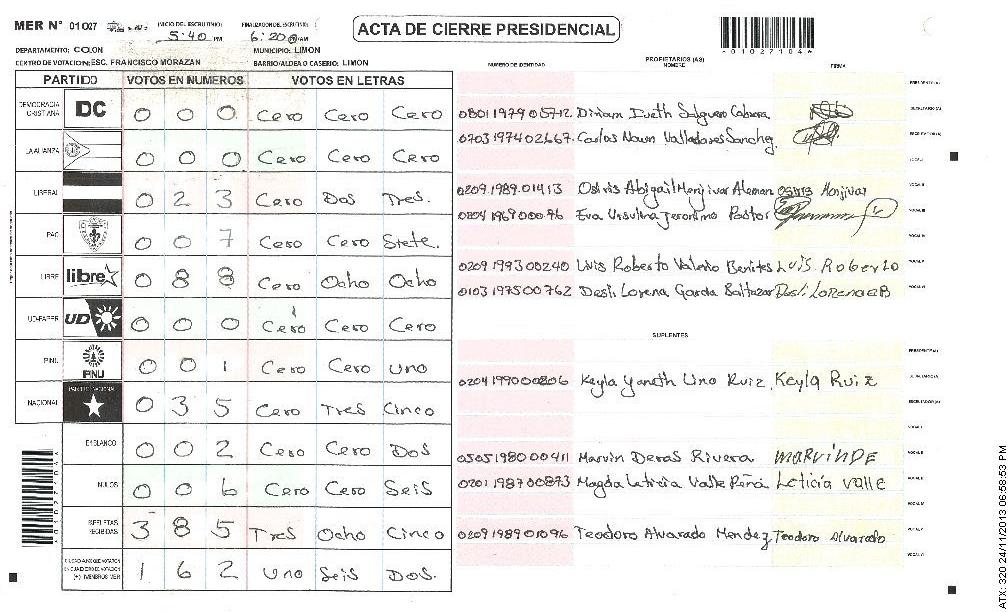 MER N° 01027 INICIO DEL ESCRUTINIO: 5:40 PM FINALIZACION DEL ESCRUTINIO: 6:20 AM
ACTA DE CIERRE PRESIDENCIAL
*01027104*
DEPARTAMENTO: COLON MUNICIPIO: LIMON
CENTRO DE VOTACION: ESC. FRANCISCO MORAZAN BARRIO/ALDEA O CASERIO: LIMON
PARTIDO VOTOS EN NUMEROS VOTOS EN LETRAS
DEMOCRACIA CRISTIANA DC 0 0 0 Cero Cero Cero
LA ALIANZA 0 0 0 Cero Cero Cero
LIBERAL 0 2 3 Cero Dos Tres.
PAC 0 0 7 Cero Cero Siete.
LIBRE libre 0 8 8 Cero Ocho Ocho
UD-FAPER UD 0 0 0 Cero Cero Cero
PINU PINU 0 0 1 Cero Cero uno
NACIONAL PARTIDO NACIONAL 0 3 5 Cero Tres Cinco
EN BLANCO 0 0 2 Cero Cero Dos
NULOS 0 0 6 Cero Cero Seis
PAPELETAS RECIBIDAS 3 8 5 Tres Ocho Cinco
1 6 2 Uno Seis Dos.
NUMERO DE IDENTIDAD PROPIETARIOS (AS) NOMBRE FIRMA
PRESIDENTE(A)
0801197905712 SECRETARIO (A)
0703197402667 Carlos Nawn Valladares Sanchez ESCRUTADOR(A)
VOCAL I
0209.1989.01413 Osiris Abigail Menjivar Aleman Osiris Menjivar VOCAL II
Eva Ursulina Jeronimo Pastor VOCAL III
VOCAL IV
0209199300240 Luis Roberto Valerio Benites Luis Roberto VOCAL V
0103197500762 Desli Lorena Garcia Baltazar Desli Lorena GB VOCAL VI
SUPLENTES
PRESIDENTE(A)
0204199000806 Keyla Yaneth Uno Ruiz. Keyla Ruiz SECRETARIO(A)
ESCRUTADOR(A)
VOCAL I
0505198000411 Marvin Deras Rivera MARVINDE VOCAL II
0201198700873 Magda Leticia Valle Leticia Valle VOCAL III
VOCAL IV
0209198901096 Teodoro Alvarado Mendez Teodoro Alvarado VOCAL V
VOCAL VI
ATX: 320 24/11/2013 06:58:53 PM